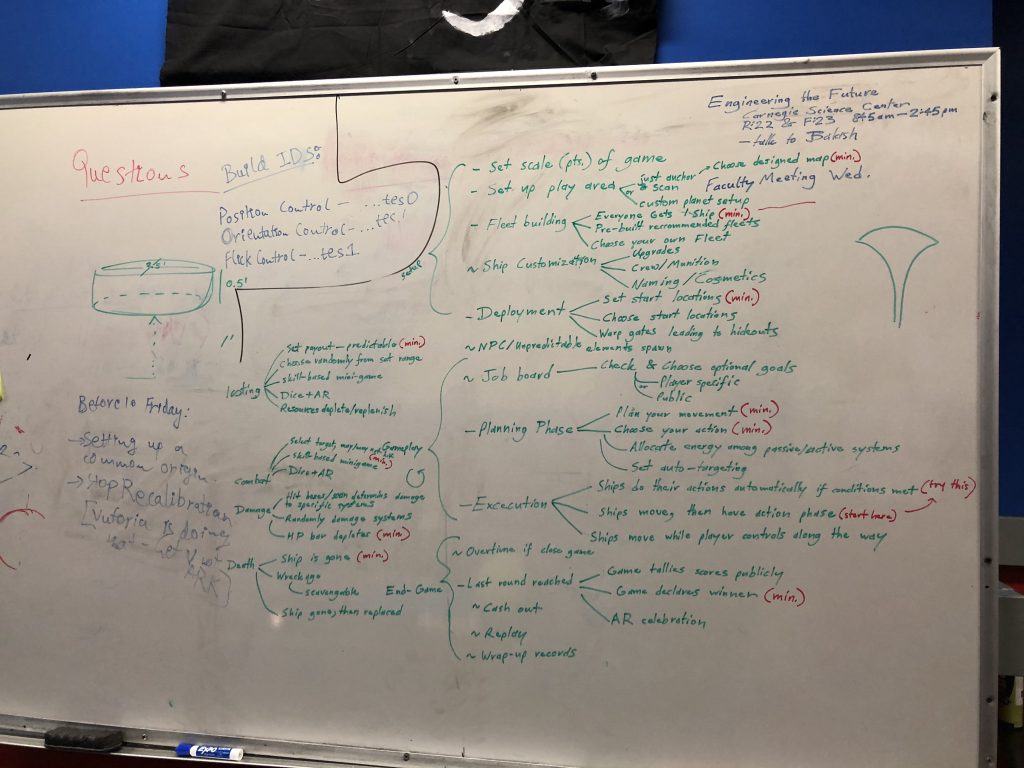 Engineering the Future
Carnegie Science Center
R:22 & F:23 8:45am - 2:45pm
- talk to Baksh
Faculty Meeting Wed.
Questions
Build IDS:
Position Control - ...tes0
Orientation Control - ...tes!
Flick Control - ...tes1
2.5'
0.5'
1'
Before 10 Friday:
→ Setting up a
common origin.
→ Stop Recalibration
[Vuforia is doing
not
ARK]
Setup
- Set scale (pts.) of game
- Set up play area
just anchor
or scan
Choose designed map (min.)
custom planet setup
- Fleet building
Everyone Gets 1-Ship (min.)
Pre-built recommended fleets
Choose your own Fleet
~ Ship Customization
Upgrades
Crew/Munition
Naming/Cosmetics
- Deployment
Set start locations (min.)
Choose start locations
Warp gates leading to hideouts
~ NPC/Unpredictable elements spawn
Gameplay
~ Job board
Check & Choose optional goals
or
Player specific
Public
- Planning Phase
Plan your movement (min.)
Choose your action (min.)
Allocate energy among passive/active systems
Set auto-targeting
- Excecution
Ships do their actions automatically if conditions met (try this)
Ships move, then have action phase (start here)
Ships move while player controls along the way
End-Game
~ Overtime if close game
- Last round reached
Game tallies scores publicly
Game declares winner (min.)
AR celebration
~ Cash out
~ Replay
~ Wrap-up records
looting
Set payout - predictable (min.)
Choose randomly from set range
skill-based mini-game
Dice + AR
Resources deplete/replenish
Combat
Select target, may/may not hit
skill-based minigame (min.)
Dice + AR
Damage
Hit boxes/ determine damage
to specific systems
Randomly damage systems
HP bar depletes (min.)
Death
Ship is gone (min.)
Wreckage
scavengable
Ship gone, then replaced
EXPO